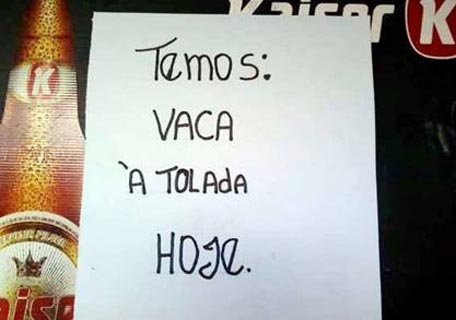 Kaiser K
K
Temos:
VACA
À TOLAdA
HOJe.
aiser